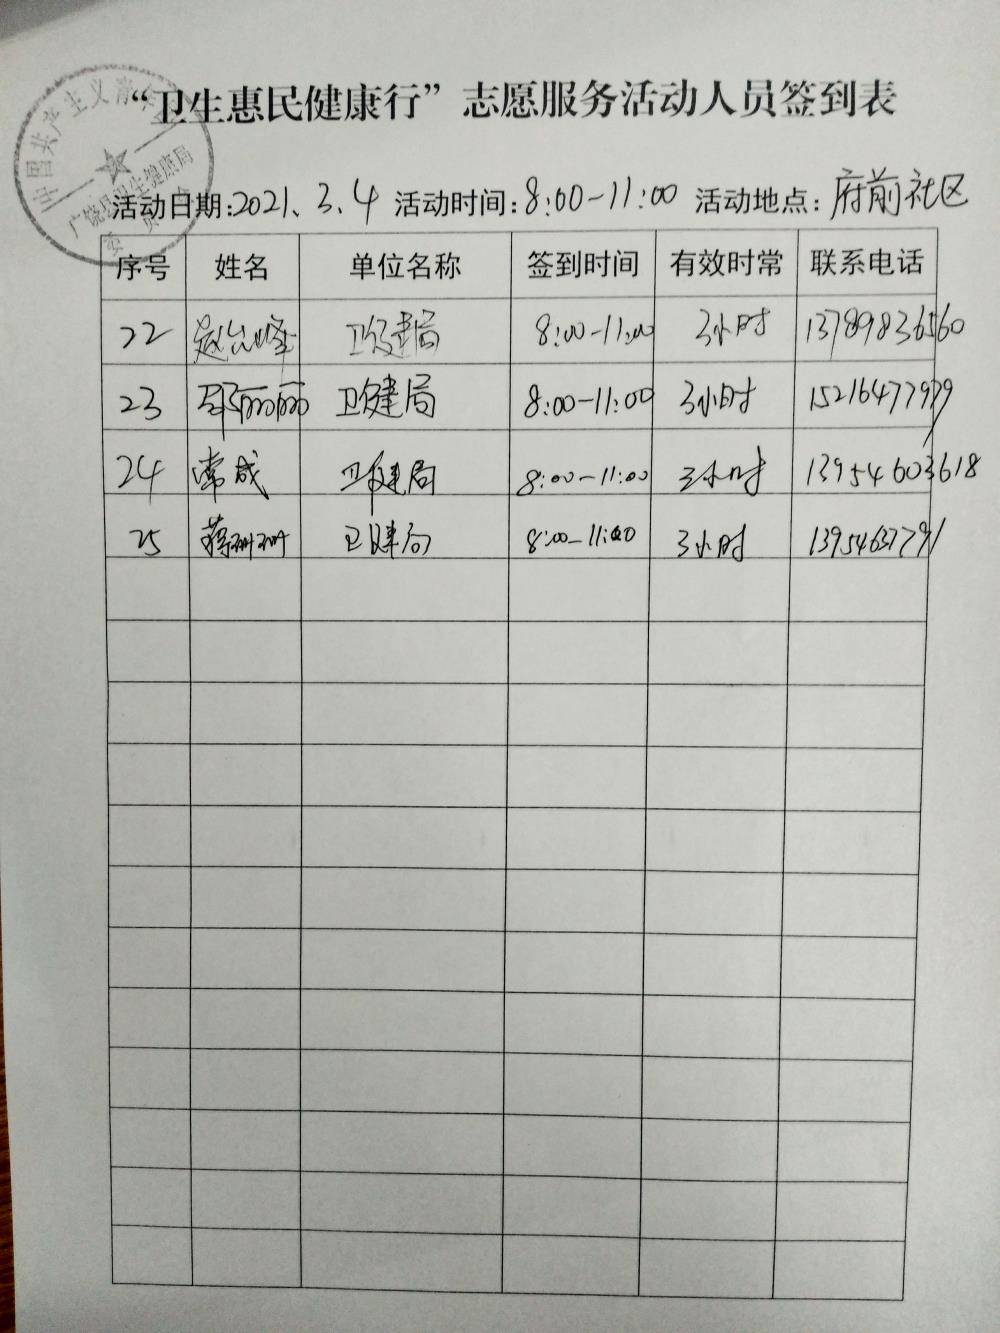 “卫生惠民健康行”志愿服务活动人员签到表
中国共产主义青年团
广饶县卫生健康局
委员会
活动日期:2021、3、4 活动时间:8:00-11:00 活动地点:府前社区
序号 姓名 单位名称 签到时间 有效时常 联系电话
22 赵 峰 卫健局 8:00-11:00 3小时 13789836560
23 邵丽丽 卫健局 8:00-11:00 3小时 15216477979
24 常成 卫健局 8:00-11:00 3小时 13954603618
25 蒋珊珊 卫健局 8:00-11:00 3小时 13954637791